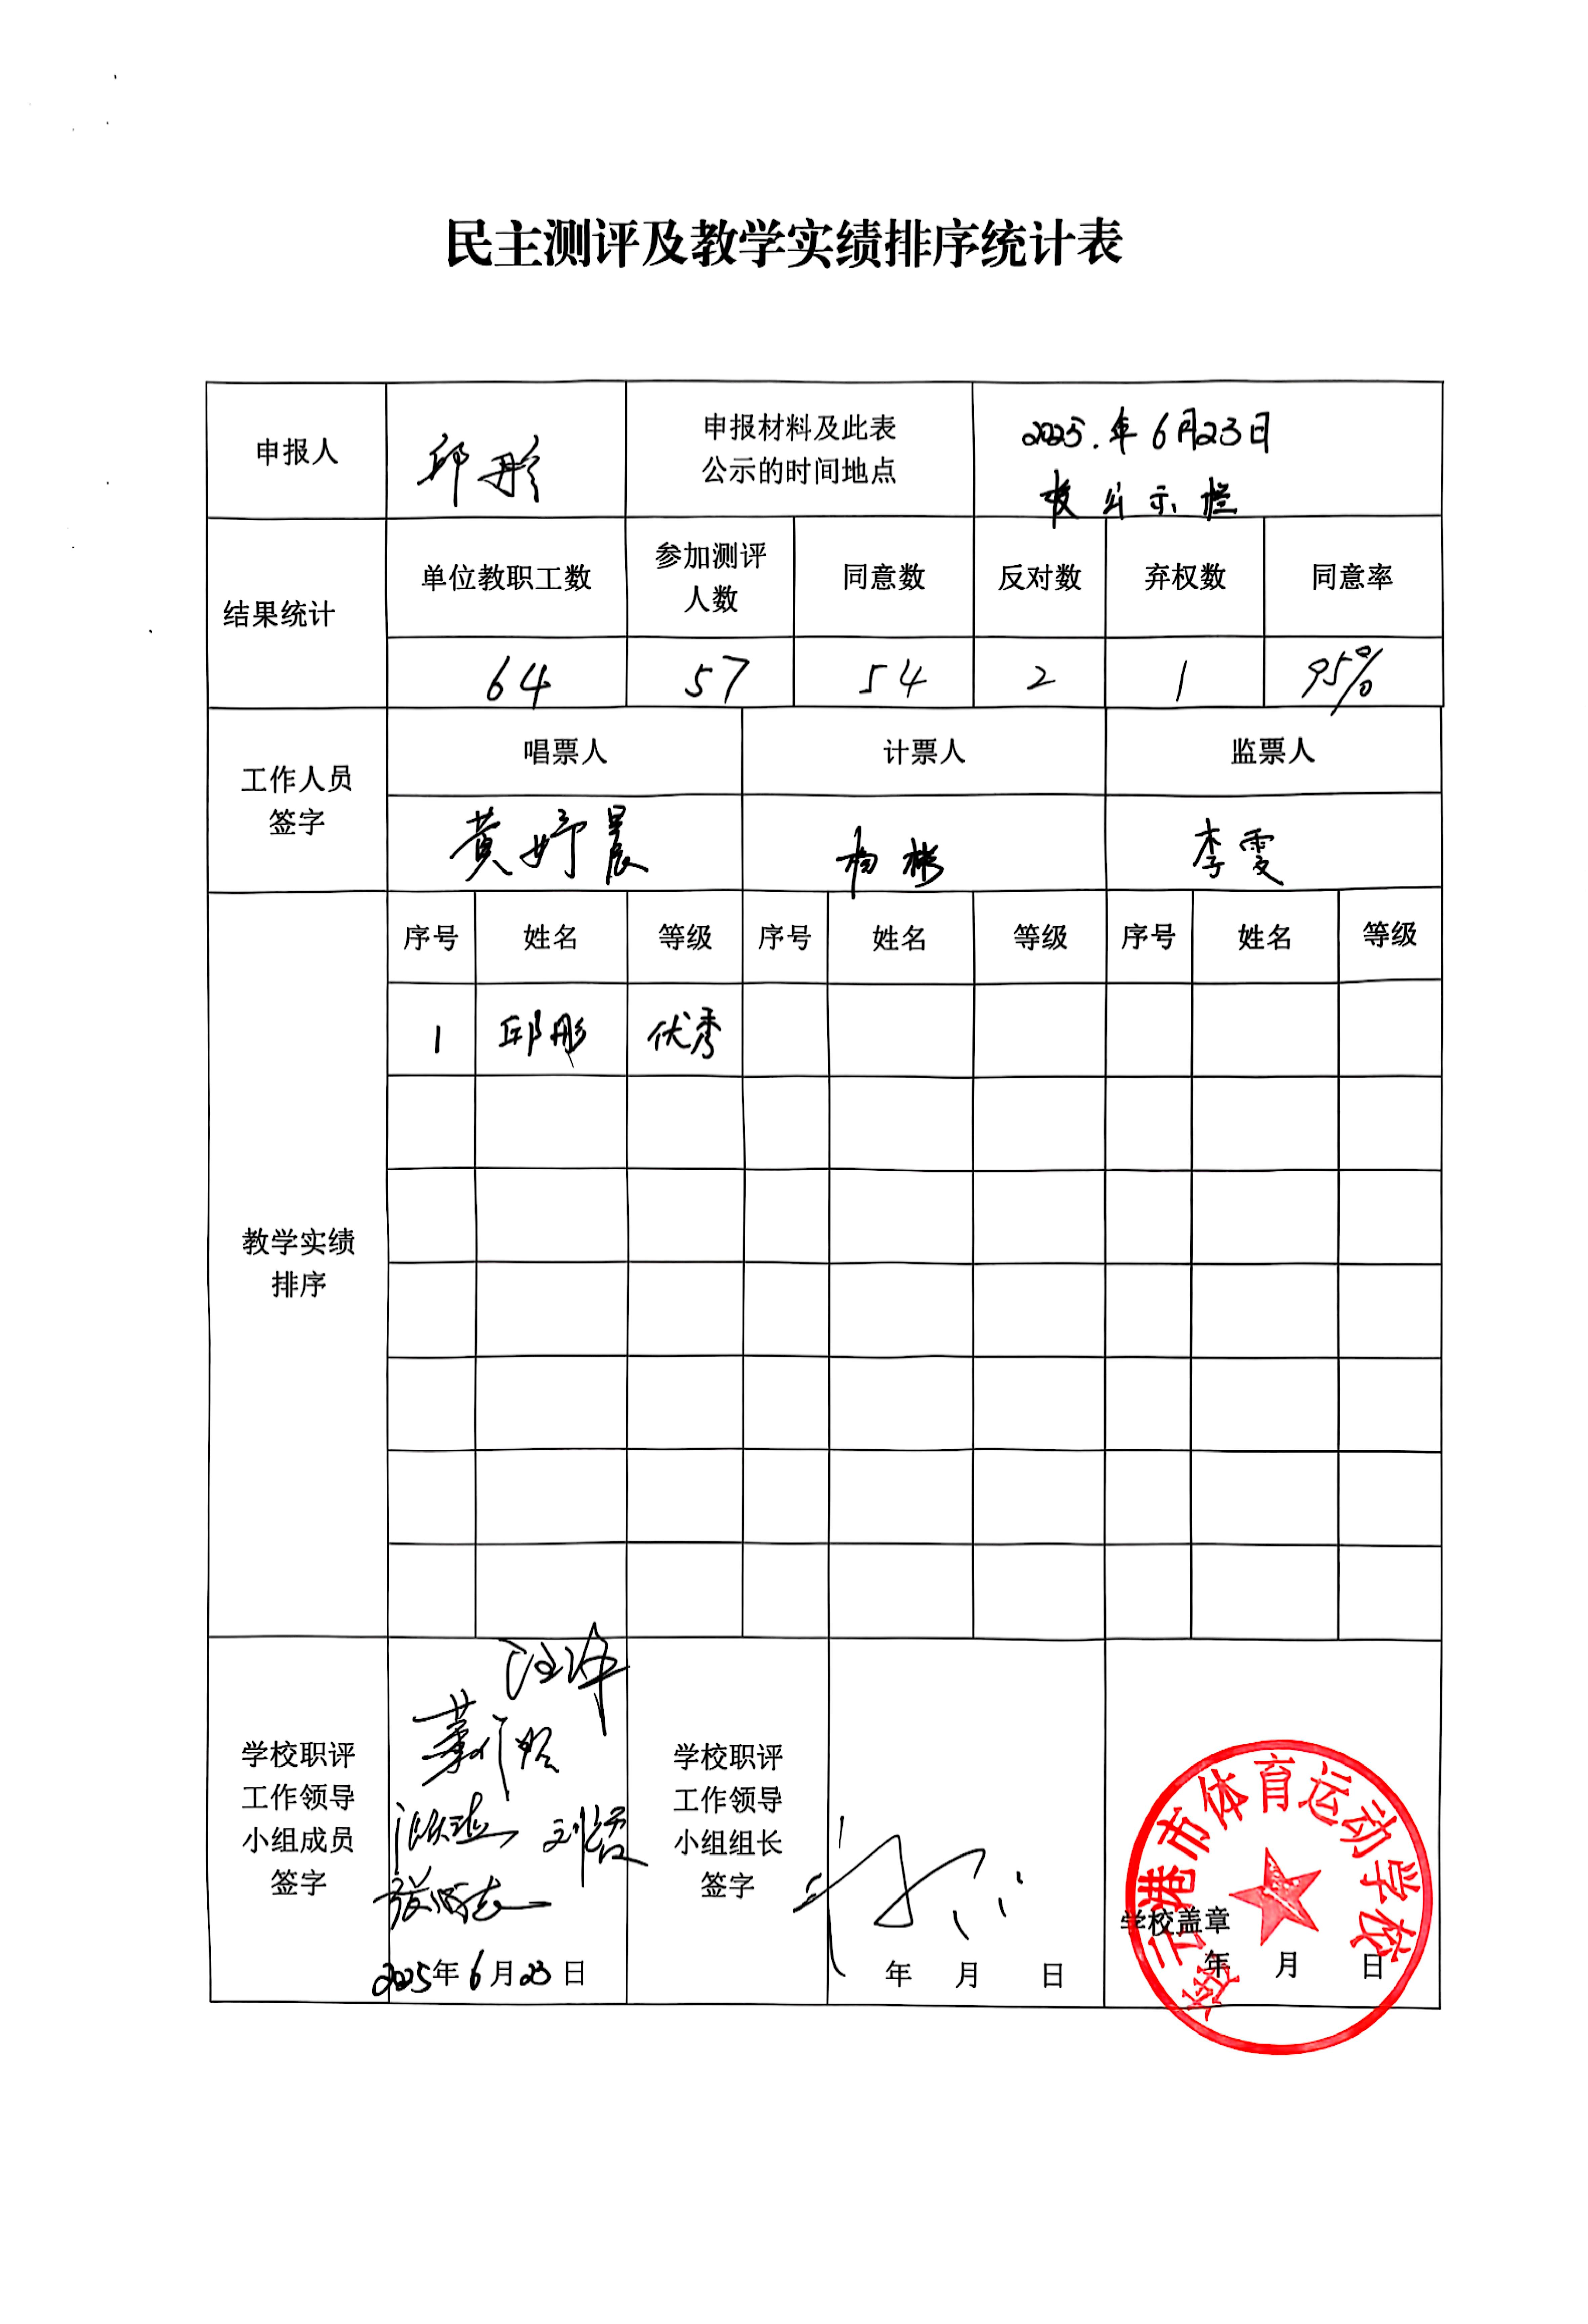 民主测评及教学实绩排序统计表
申报人
邱彤
申报材料及此表
公示的时间地点
2025.年6月23日
校公示栏
结果统计
单位教职工数
参加测评
人数
同意数
反对数
弃权数
同意率
64
57
54
2
1
95%
工作人员
签字
唱票人
计票人
监票人
黄妤晨
杨彬
李雯
教学实绩
排序
序号 姓名 等级 序号 姓名 等级 序号 姓名 等级
1 邱彤 优秀
学校职评
工作领导
小组成员
签字
2025年6月23日
学校职评
工作领导
小组组长
签字
年 月 日
连云港市体育运动学校
学校盖章
年 月 日